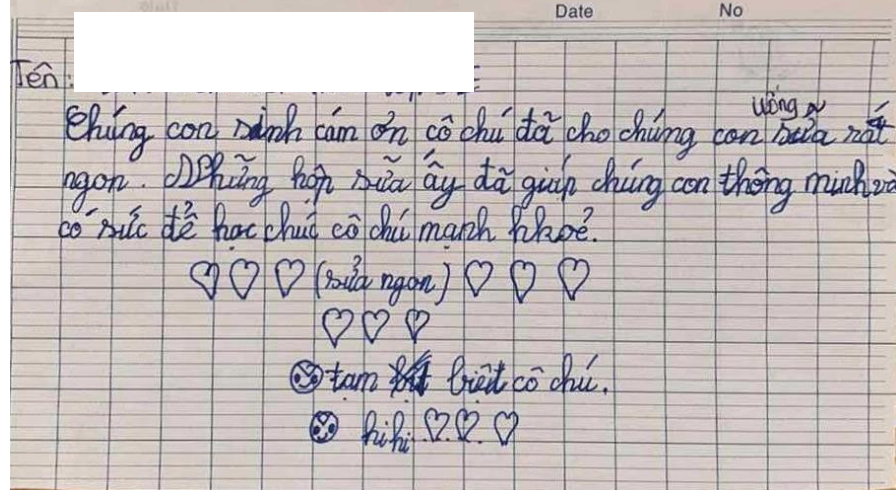 Date No
Tên:
uống
Chúng con xinh cám ơn cô chú đã cho chúng con sữa rất
ngon. Những hộp sữa ấy đã giúp chúng con thông minh và
có sức để học chúc cô chú mạnh khoẻ.
(sửa ngon)
tạm biệt cô chú.
hihi